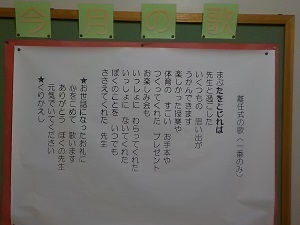 今月の歌
離任式の歌（一番のみ）
まぶたをとじれば
先生と過ごした
いくつもの 思い出が
うかんできます
楽しかった授業や
体育の すごい お手本や
つくってくれた プレゼント
お楽しみ会も
いっしょに わらってくれた
いっしょに ないてくれた
ぼくのことを いつでも
ささえてくれた 先生
★お世話になったお礼に
心をこめて 歌います
ありがとう ぼくの先生
元気でいてください
★くりかえし